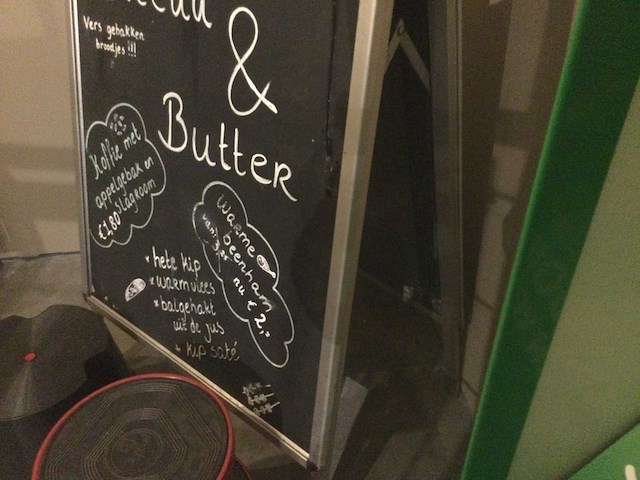 &
Butter
Vers gebakken
broodjes !!!
Koffie met
appelgebak en
slagroom
€1,80
warme
beenham
nu € 2,-
* hete kip
* warm vlees
* balgehakt
uit de jus
* kip saté